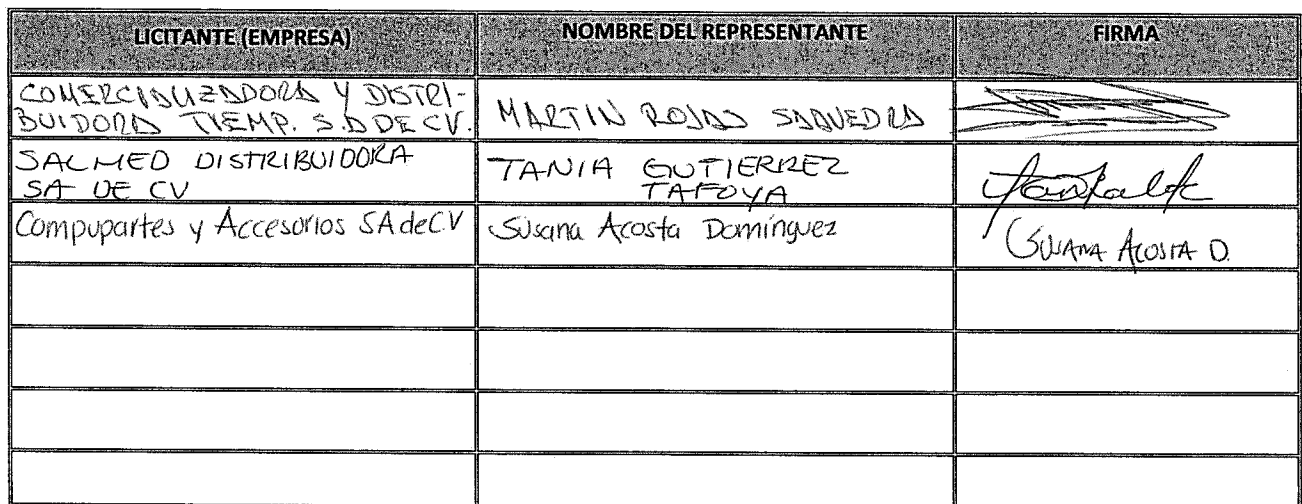 LICITANTE (EMPRESA) NOMBRE DEL REPRESENTANTE FIRMA
COMERCIALIZADORA Y DISTRI-
BUIDORA TIEMP. S.A DE CV.
MARTIN ROJAS SAAVEDRA
SALMED DISTRIBUIDORA
SA DE CV
TANIA GUTIERREZ
TAFOYA
Compupartes y Accesorios SA de CV
Susana Acosta Domínguez
SUSANA ACOSTA D.